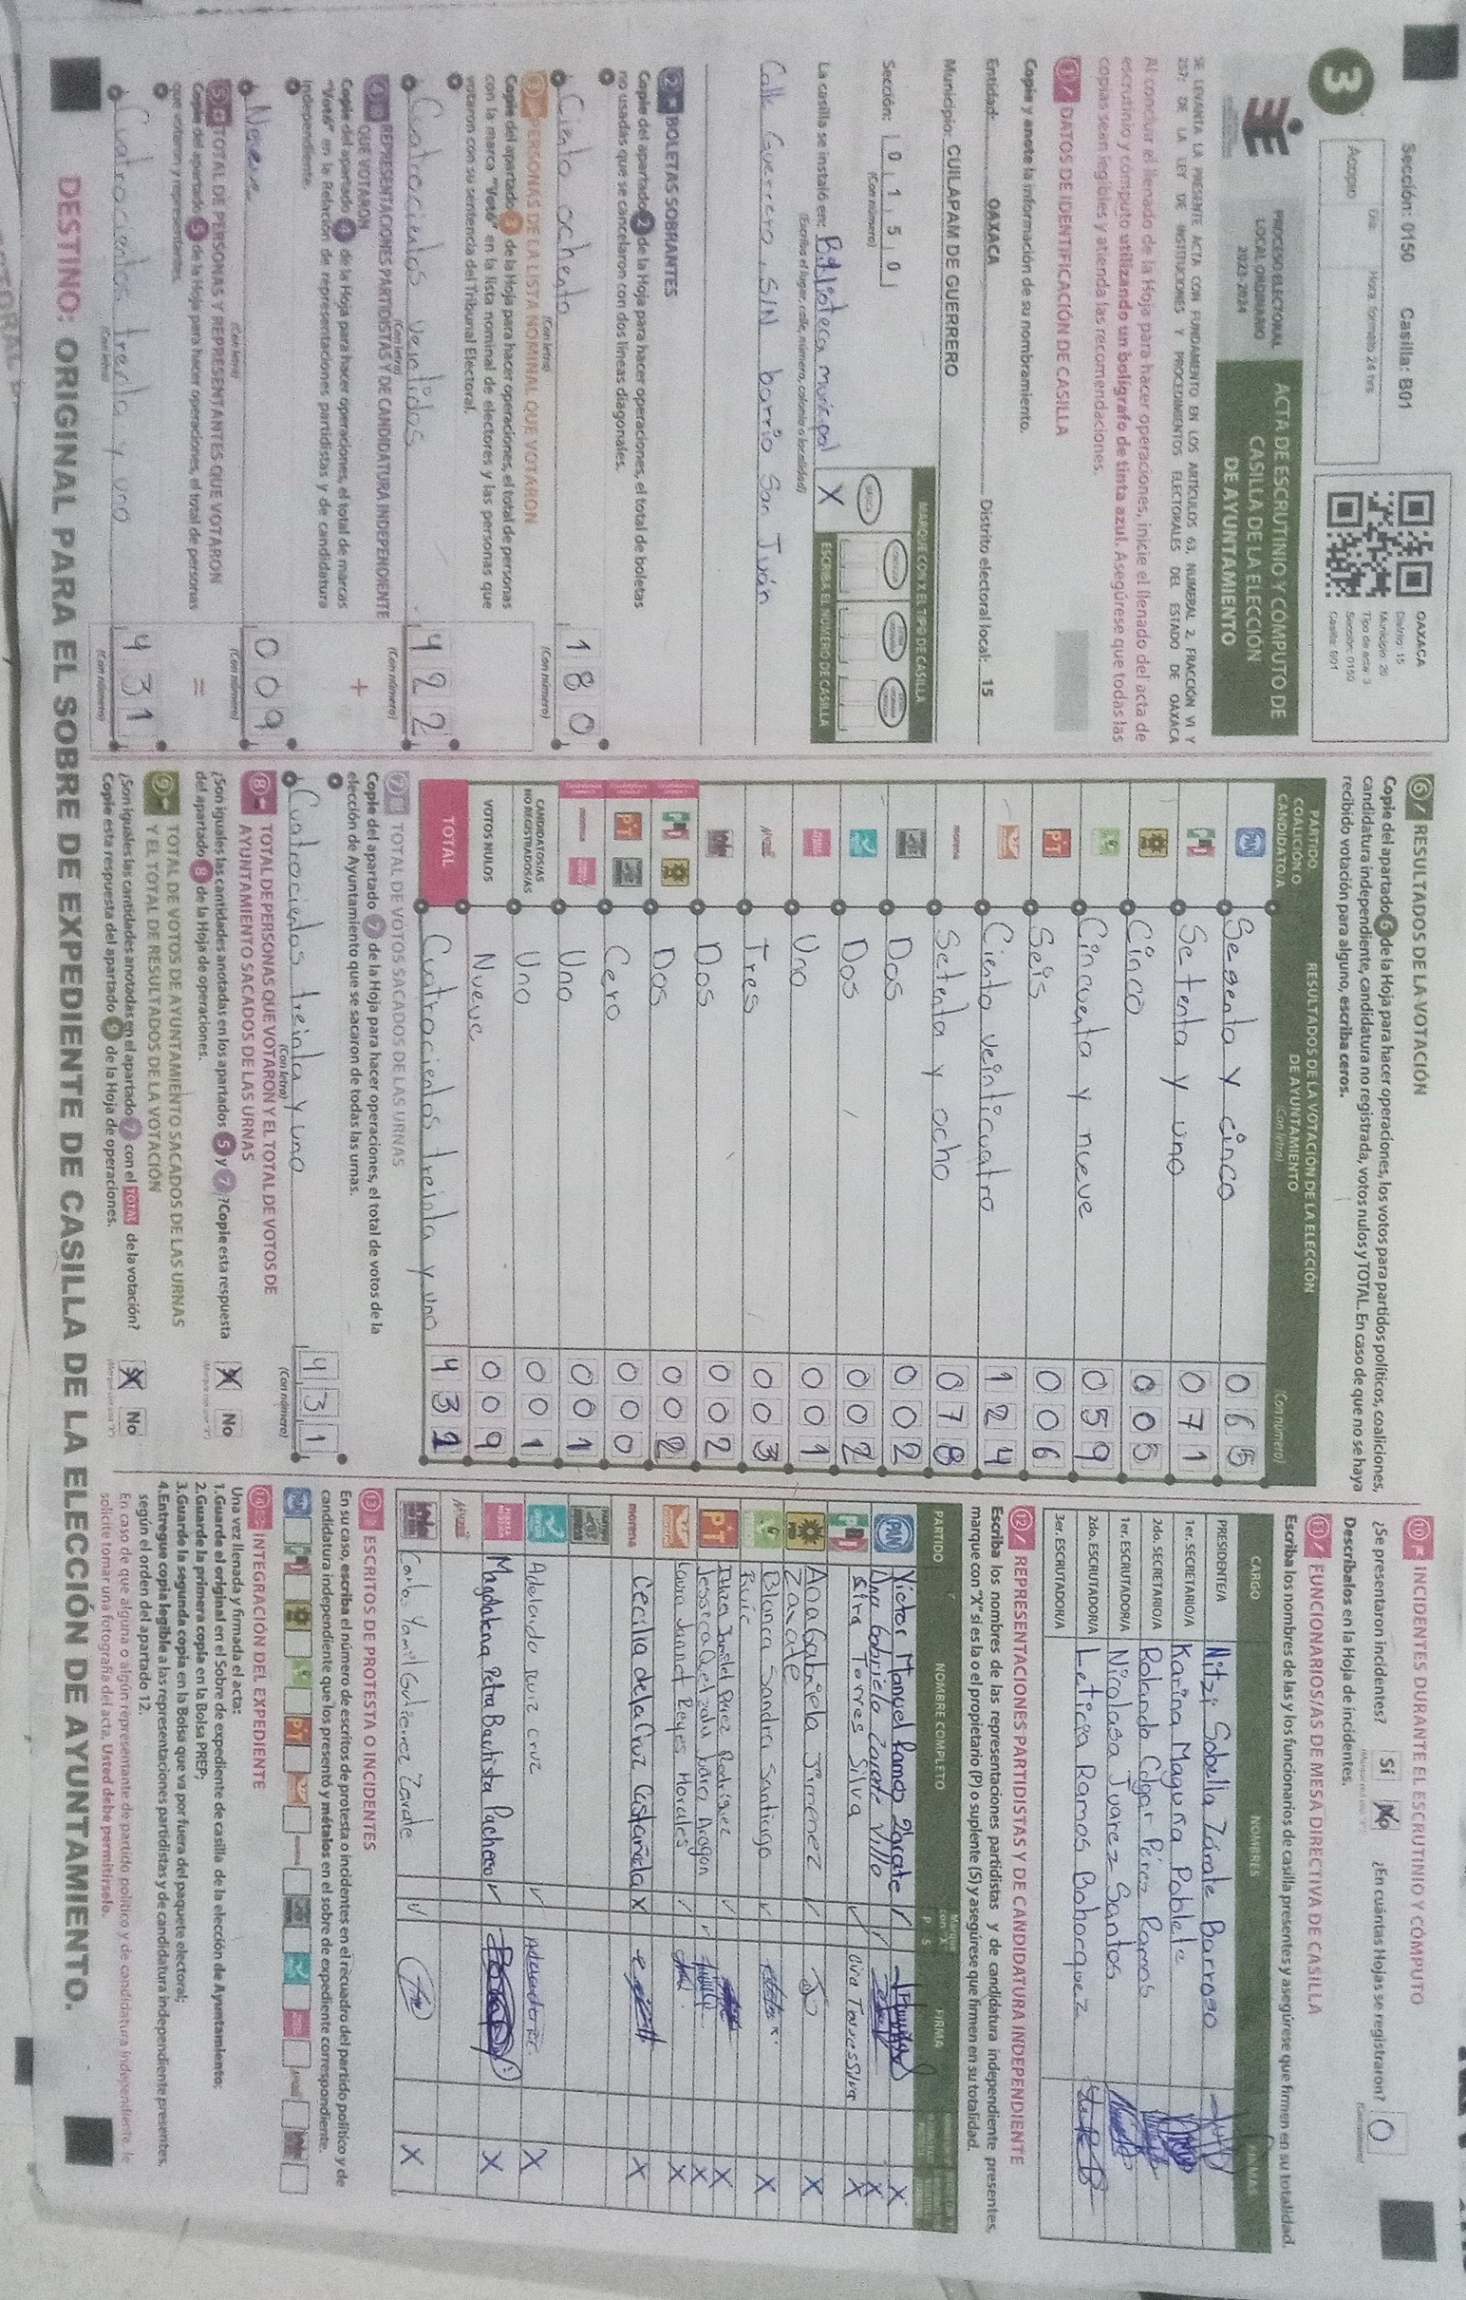 3
Sección: 0150 Casilla: B01
Acopio
Día:
Hora: formato 24 hrs
OAXACA
Distrito: 15
Municipio: 26
Tipo de acta: 3
Sección: 0150
Casilla: B01
PROCESO ELECTORAL
LOCAL ORDINARIO
2023-2024
ACTA DE ESCRUTINIO Y CÓMPUTO DE
CASILLA DE LA ELECCIÓN
DE AYUNTAMIENTO
SE LEVANTA LA PRESENTE ACTA CON FUNDAMENTO EN LOS ARTÍCULOS 63, NUMERAL 2, FRACCIÓN VI Y
237; DE LA LEY DE INSTITUCIONES Y PROCEDIMIENTOS ELECTORALES DEL ESTADO DE OAXACA
Al concluir el llenado de la Hoja para hacer operaciones, inicie el llenado del acta de
escrutinio y cómputo utilizando un bolígrafo de tinta azul. Asegúrese que todas las
copias sean legibles y atienda las recomendaciones.
1 DATOS DE IDENTIFICACIÓN DE CASILLA
Copie y anote la información de su nombramiento.
Entidad: OAXACA Distrito electoral local: 15
Municipio: CUILAPAM DE GUERRERO
Sección: 0 1 5 0
(Con número)
MARQUE CON X EL TIPO DE CASILLA
X
ESCRIBA EL NÚMERO DE CASILLA
La casilla se instaló en: Biblioteca municipal
(Escriba el lugar, calle, número, colonia o localidad)
Calle Guerrero, S/N barrio San Juán
2 BOLETAS SOBRANTES
Copie del apartado 2 de la Hoja para hacer operaciones, el total de boletas
no usadas que se cancelaron con dos líneas diagonales.
Ciento ochenta 180
(Con letra) (Con número)
3 PERSONAS DE LA LISTA NOMINAL QUE VOTARON
Copie del apartado 3 de la Hoja para hacer operaciones, el total de personas
con la marca "Votó" en la lista nominal de electores y las personas que
votaron con su sentencia del Tribunal Electoral.
Cuatrocientos veintidos 422
(Con letra) (Con número)
4 REPRESENTACIONES PARTIDISTAS Y DE CANDIDATURA INDEPENDIENTE
QUE VOTARON
Copie del apartado 4 de la Hoja para hacer operaciones, el total de marcas
"Votó" en la Relación de representaciones partidistas y de candidatura
independiente.
+
Nueve 009
(Con letra) (Con número)
5 TOTAL DE PERSONAS Y REPRESENTANTES QUE VOTARON
Copie del apartado 5 de la Hoja para hacer operaciones, el total de personas
que votaron y representantes.
=
Cuatrocientos treinta y uno 431
(Con letra) (Con número)
6 RESULTADOS DE LA VOTACIÓN
Copie del apartado 6 de la Hoja para hacer operaciones, los votos para partidos políticos, coaliciones,
candidatura independiente, candidatura no registrada, votos nulos y TOTAL. En caso de que no se haya
recibido votación para alguno, escriba ceros.
PARTIDO,
COALICIÓN O
CANDIDATO/A
RESULTADOS DE LA VOTACIÓN DE LA ELECCIÓN
DE AYUNTAMIENTO
(Con letra)
(Con número)
PAN Sesenta y cinco 065
PRI Setenta y uno 071
Cinco 005
Cincuenta y nueve 059
PT Seis 006
Ciento veinticuatro 124
morena Setenta y ocho 078
Dos 002
Dos 002
Uno 001
Tres 003
Dos 002
Dos 002
PT Cero 000
Uno 001
CANDIDATOS/AS
NO REGISTRADOS/AS
Uno 001
VOTOS NULOS Nueve 009
TOTAL Cuatrocientos treinta y uno 431
7 TOTAL DE VOTOS SACADOS DE LAS URNAS
Copie del apartado 7 de la Hoja para hacer operaciones, el total de votos de la
elección de Ayuntamiento que se sacaron de todas las urnas.
Cuatrocientos treinta y uno 431
(Con letra) (Con número)
8 TOTAL DE PERSONAS QUE VOTARON Y EL TOTAL DE VOTOS DE
AYUNTAMIENTO SACADOS DE LAS URNAS
¿Son iguales las cantidades anotadas en los apartados 5 y 7? Copie esta respuesta
del apartado 8 de la Hoja de operaciones.
X No
9 TOTAL DE VOTOS DE AYUNTAMIENTO SACADOS DE LAS URNAS
Y EL TOTAL DE RESULTADOS DE LA VOTACIÓN
¿Son iguales las cantidades anotadas en el apartado 7 con el TOTAL de la votación?
Copie esta respuesta del apartado 9 de la Hoja de operaciones.
X No
10 INCIDENTES DURANTE EL ESCRUTINIO Y CÓMPUTO
¿Se presentaron incidentes? Sí No ¿En cuántas Hojas se registraron? 0
Descríbalos en la Hoja de incidentes.
11 FUNCIONARIOS/AS DE MESA DIRECTIVA DE CASILLA
Escriba los nombres de las y los funcionarios de casilla presentes y asegúrese que firmen en su totalidad.
CARGO NOMBRES FIRMAS
PRESIDENTE/A Nitzi Sobelia Zárate Barroso
1er. SECRETARIO/A Karina Magura Poblete
2do. SECRETARIO/A Rolando Edgar Pérez Ramos
1er. ESCRUTADOR/A Nicolasa Juarez Santos
2do. ESCRUTADOR/A Leticia Ramos Bohorquez
3er. ESCRUTADOR/A
12 REPRESENTACIONES PARTIDISTAS Y DE CANDIDATURA INDEPENDIENTE
Escriba los nombres de las representaciones partidistas y de candidatura independiente presentes,
marque con "X" si es la o el propietario (P) o suplente (S) y asegúrese que firmen en su totalidad.
PARTIDO NOMBRE COMPLETO Marque con "X" P S FIRMA
PAN Victor Manuel Ramos Zarate X
Ana Gabriela Zarate Villo X
PRI Elvia Torres Silva Elvia Torres Silva X
Ana Gabriela Jimenez X
Zarate
Blanca Sandra Santiago X
Ruiz
PT Perez Rodriguez X
Jessica Aragon X
Laura Jannet Reyes Morales X
morena Cecilia de la Cruz Castañeda X X
Adelaido Ruiz Cruz X
Magdalena Petra Bautista Pacheco X
Carlos Yamil Gutierrez Zarate X
13 ESCRITOS DE PROTESTA O INCIDENTES
En su caso, escriba el número de escritos de protesta o incidentes en el recuadro del partido político y de
candidatura independiente que los presentó y métalos en el sobre de expediente correspondiente.
14 INTEGRACIÓN DEL EXPEDIENTE
Una vez llenada y firmada el acta:
1.Guarde el original en el Sobre de expediente de casilla de la elección de Ayuntamiento;
2.Guarde la primera copia en la Bolsa PREP;
3.Guarde la segunda copia en la Bolsa que va por fuera del paquete electoral;
4.Entregue copia legible a las representaciones partidistas y de candidatura independiente presentes,
según el orden del apartado 12.
En caso de que alguna o algún representante de partido político y de candidatura independiente le
solicite tomar una fotografía del acta, Usted debe permitírselo.
DESTINO: ORIGINAL PARA EL SOBRE DE EXPEDIENTE DE CASILLA DE LA ELECCIÓN DE AYUNTAMIENTO.